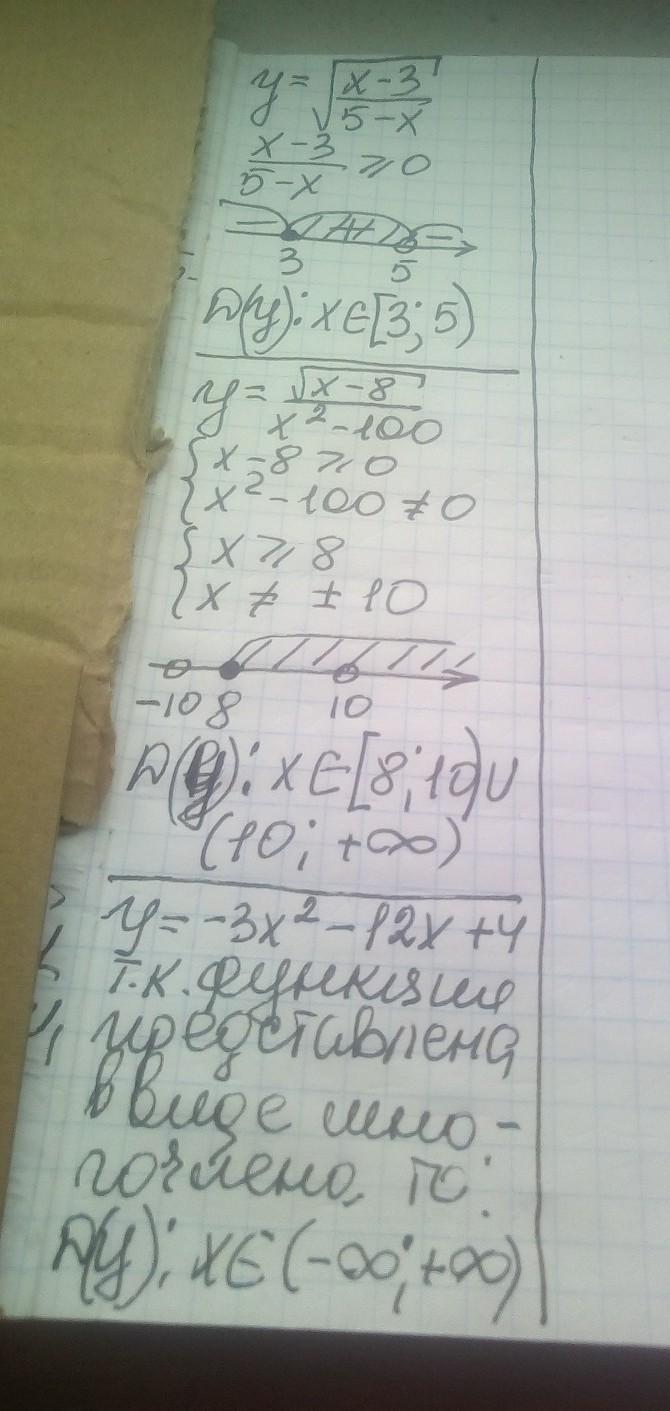 y = √((x-3)/(5-x))
(x-3)/(5-x) ⩾ 0
− ++ −
3 5
D(y): x∈[3; 5)
y = √(x-8)/(x²-100)
{ x-8 ⩾ 0
{ x²-100 ≠ 0
{ x ⩾ 8
{ x ≠ ±10
-10 8 10
D(y): x∈[8; 10)∪
(10; +∞)
y = -3x²-12x+4
т.к. функция
представлена
в виде мно-
гочлена, то:
D(y): x∈(-∞; +∞)